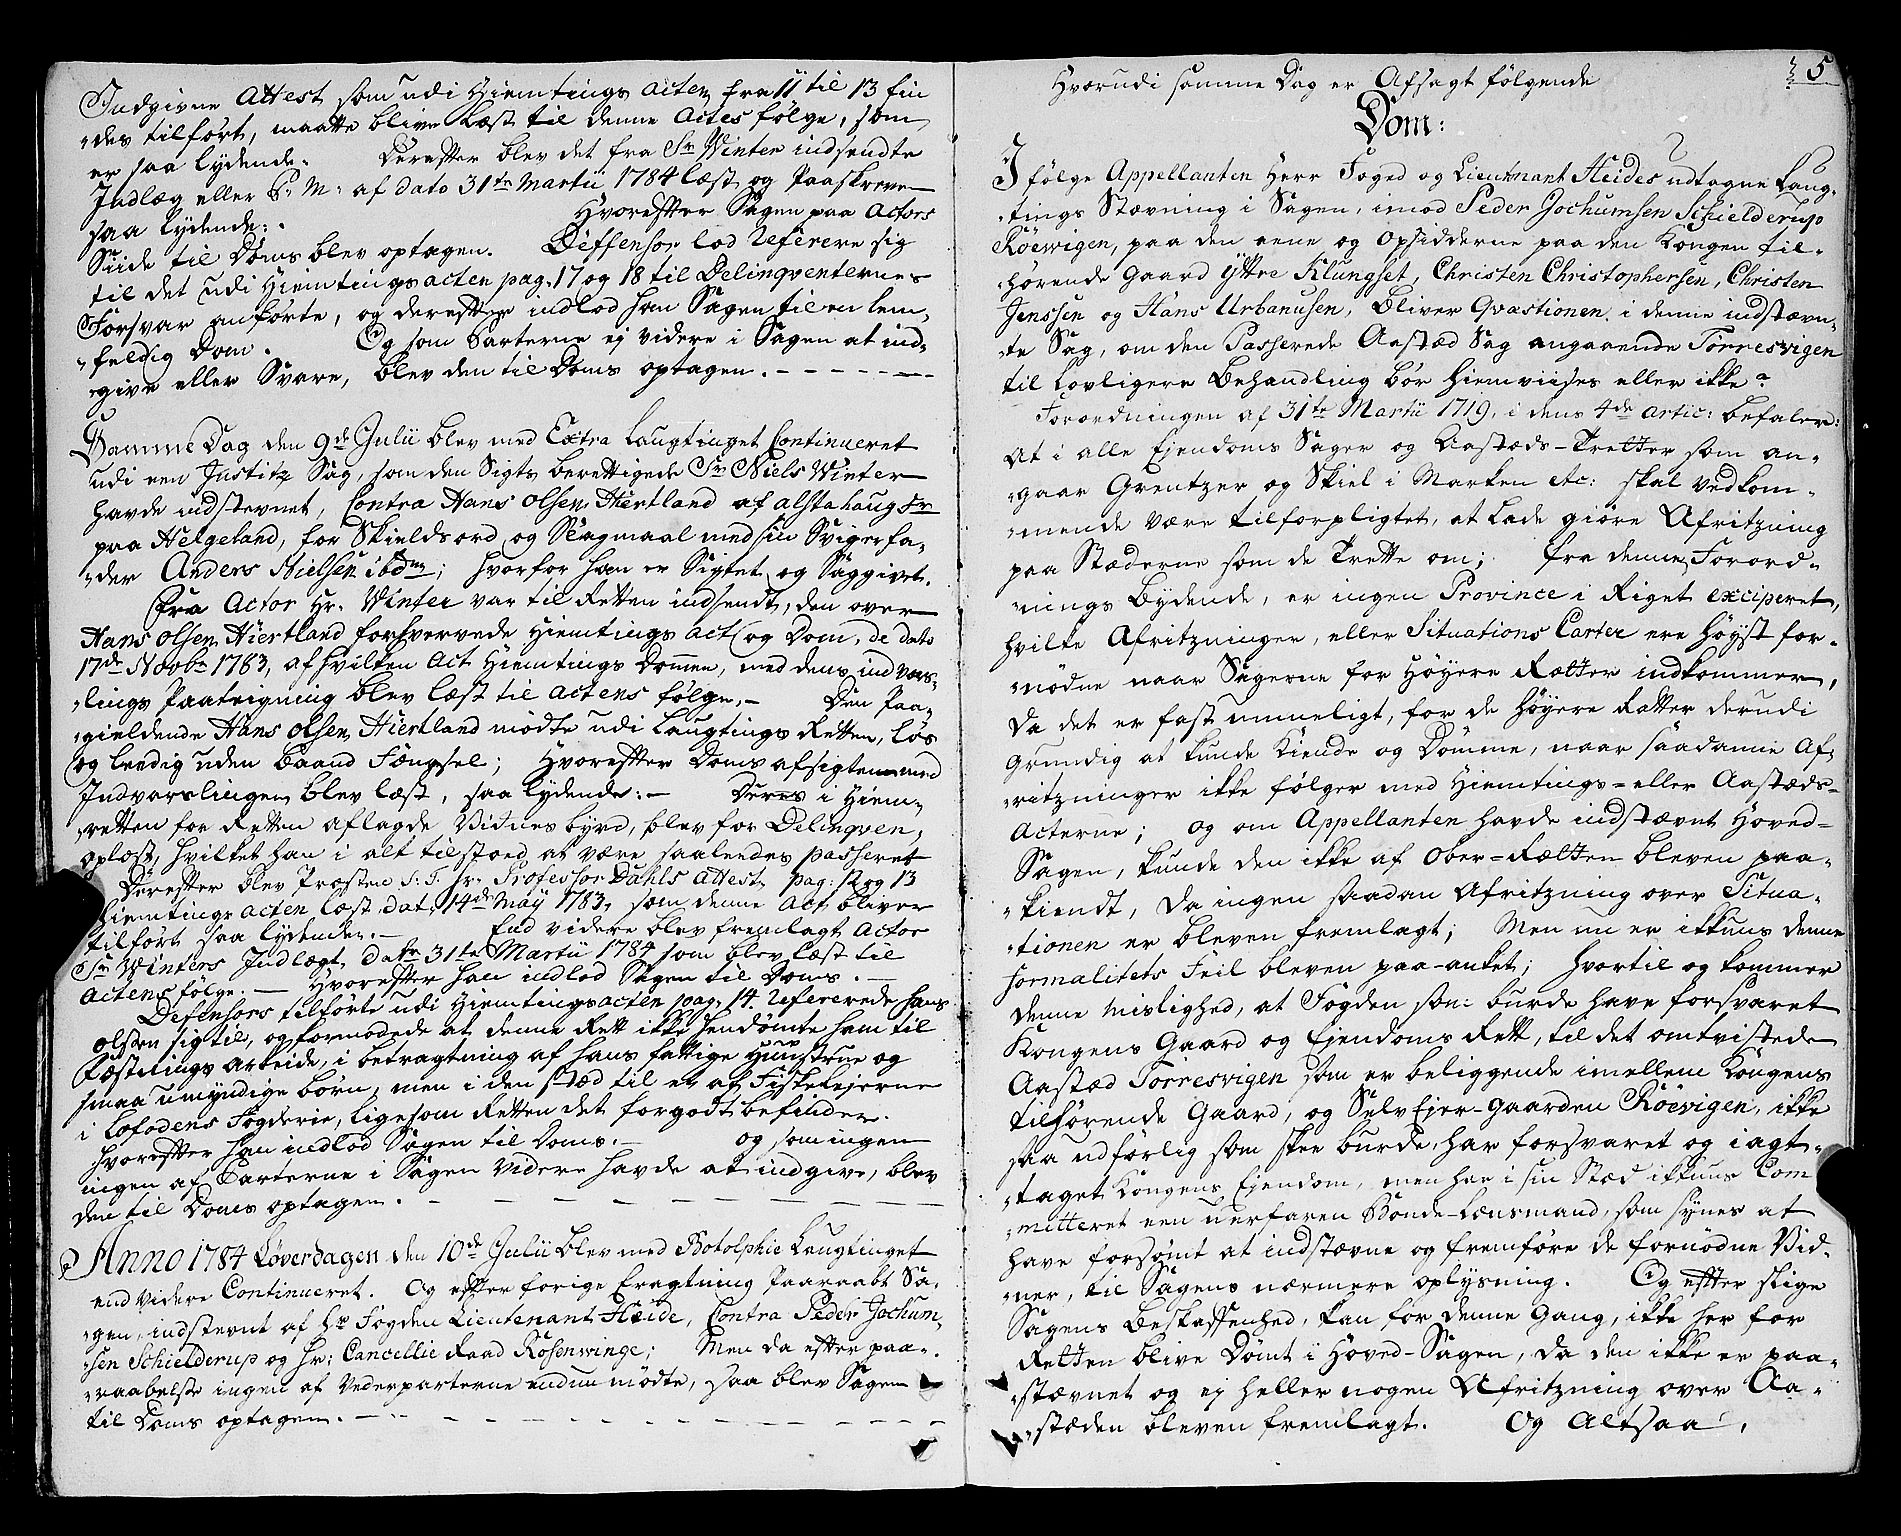 Indgivne Attest som udi Hiemtings acten fra 11 til 13 fin
des tilført, maatte blive læst til denne Actes følge, som
er saa lydende. Derefter blev det fra Sr Winter indsendte
Indlæg eller P: M: af dato 31te Martii 1784 læst og Paaskreven
saa lydende:. Hvorefter Sagen paa Actors
Siide til Doms blev optagen. Deffensor lod referere sig
til det udi Hiemtings acten pag. 17 og 18 til Delinqventernes
Forsvar anførte, og derefter indlod han Sagen til en lem-
feldig Dom. Og som Parterne ej videre i Sagen at ind-
give eller Svare, blev den til Doms optagen.
Samme Dag den 9de Julii blev med Extra Laugtinget Continueret
udi een Justitz Sag, som den Sigts berettigede Sr Niels Winter
havde indstevnet, Contra Hans Olsen Hiertland af Alstahaug Fr
paa Helgeland, for Skieldsord og Slagmaal med sin Svigerfa-
der Anders Nielsen ibdm; hvorfor han er Sigtet og Saggivet.
Fra Actor Hr. Winter var til Retten indsendt, den over
Hans Olsen Hiertland forhvervede Hiemtings act og Dom, de dato
17de Novbr 1783, af hvilken Act Hiemtings Dommen, med dens indvars-
lings Paategning blev læst til actens følge. Den Paa-
gieldende Hans Olsen Hiertland mødte udi Laugtings Retten, løs
og leedig uden baand Fængsel; Hvorefter Doms afsigten med
Indvarslingen blev læst, saa lydende:- Deres i Hiem-
retten for Retten aflagde Vidnesbyrd, blev for Delinqven,
oplæst, hvilket han i alt tilstoed at være saaledes passeret
Derefter blev Præsten S: T. Hr. Professor Dahls Attest, pag: 12 og 13
Hiemtings acten læst, dat. 14de May 1783, som denne Act bliver
tilført saa lydende.- End videre blev fremlagt Actor
Sr Winters Indlægt dat. 31te Martii 1784 som blev læst til
actens følge.- Hvorefter han indlod Sagen til Doms.-
Defensors tilførte udi Hiemtings acten pag. 14. refererede Hans
Olsen sig til, og formodede at denne Rett ikke hendømte ham til
Fæstnings arbeide, i betragtning af hans fattige Hunstrue og
smaa umyndige børn, men i den stæd til en af Fiskelejerne
i Lofodens Fogderie, ligesom Retten det forgodt befinder.
hvorefter han indlod Sagen til Doms.- og som ingen
ingen af Parterne i Sagen videre havde at indgive, blev
den til Doms optagen.
Anno 1784 Løverdagen den 10de Julii blev med Botolphie Laugtinget
end videre Continueret. Og efter forige Eragtning Paaraabt Sa-
gen, indstevnt af Hr Fogden Lieutenant Heide, Contra Peder Jochum-
sen Schielderup og Hr: Cancellie Raad Rosenvinge; Men da efter paa-
raabelse ingen af Vederparterne endnu mødte, saa blev Sagen
til Doms optagen.
5
Hvorudi samme Dag er Afsagt følgende
Dom:
I følge Appellanten Herr Foged og Lieutnant Heides udtagne Laug-
tings Stævning i Sagen, imod Peder Jochumsen Schielderup
Röevigen, paa den eene og Opsidderne paa den Kongen til-
hørende Gaard Yttre Klungset, Christen Christophersen, Christen
Jenssen og Hans Urbanusen, bliver Qvæstionen i denne indstævn-
te Sag, om den Passerede Aastæd Sag angaaende Torresvigen
til Lovligere Behandling bør hiemviises eller ikke?
Forordningen af 31te Martii 1719, i dens 4de Artic: befaler:
at i alle Ejendoms Sager og Aastæds-Tretter som an-
gaar Grentzer og Skiel i Marken etc: skal vedkom-
mende være tilforpligtet, at lade giøre Afritzning
paa Stæderne som de trette om; fra denne Forord-
nings Bydende, er ingen Province i Riget exciperet,
hvilke Afritzninger, eller Situations Carter ere høyst for-
nødne naar Sagerne for høyere Retter indkommer,
da det er fast umueligt, for de høyere Retter derudi
grundig at kunde Kiende og Dømme, naar saadanne Af-
ritzninger ikke følger med Hiemtings- eller Aastæds-
Acterne; og om Appellanten havde indstævnt Hoved-
Sagen, kunde den ikke af Ober-Retten bleven paa-
kiendt, da ingen saadan Afritzning over Situa-
tionen er bleven fremlagt; Men nu er ikkuns denne
formalitets Feil bleven paa-anket; hvortil og kommer
denne mislighed, at Fogden som burde have forsvaret
Kongens Gaard og Ejendoms Rett, til det omtvistede
Aastæd Torresvigen som er beliggende imellem Kongens
tilhørende Gaard, og SelvEjer-Gaarden Röevigen, ikke
saa udførlig som skee burde, har forsvaret og iagt-
taget Kongens Ejendom, men har i sin Stæd ikkuns Com
mitteret een uerfaren Bonde-Lænsmand, som synes at
have forsømt at indstævne og fremføre de fornødne Vid-
ner, til Sagens nærmere oplysning. Og efter slige
Sagens Beskaffenhed, kan for denne Gang, ikke her for
Retten blive Dømt i Hoved-Sagen, da den ikke er paa-
stævnet og ej heller nogen Afritzning over Aa-
stæden bleven fremlagt. Og Altsaa,